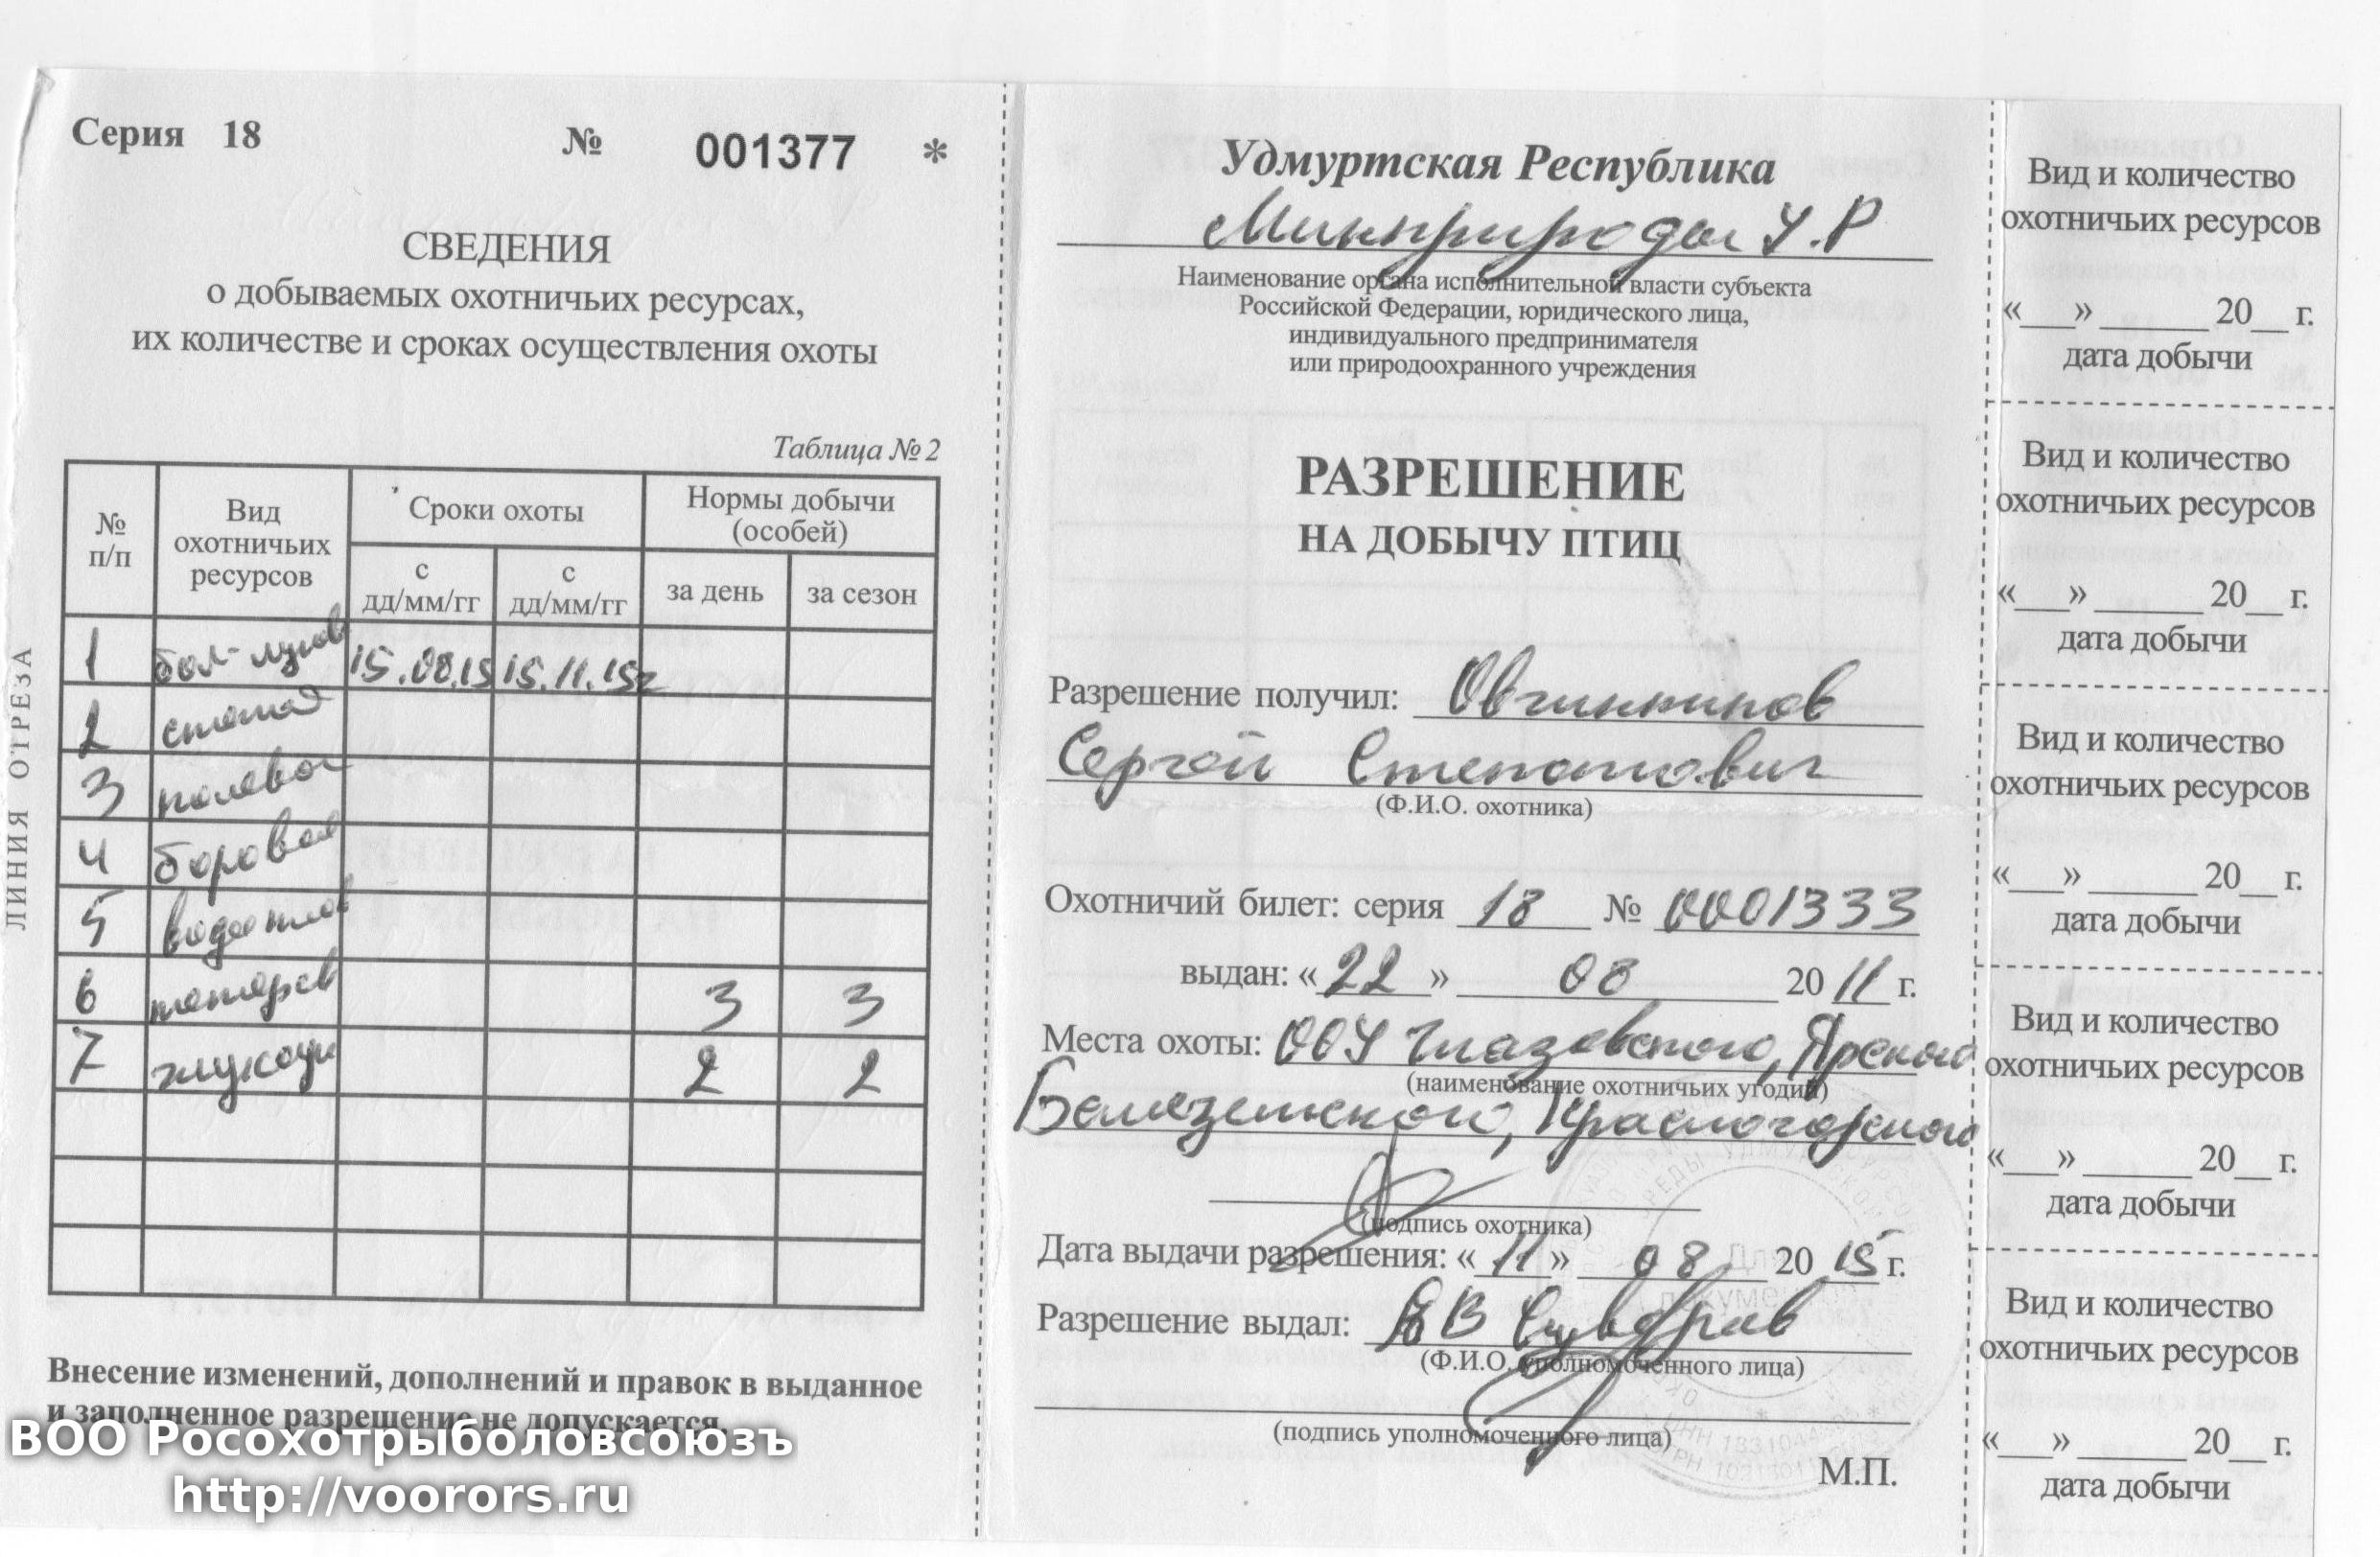 Серия 18 № 001377 *
СВЕДЕНИЯ
о добываемых охотничьих ресурсах,
их количестве и сроках осуществления охоты
Таблица № 2
№ п/п
Вид охотничьих ресурсов
Сроки охоты
Нормы добычи (особей)
с дд/мм/гг
с дд/мм/гг
за день
за сезон
1 бол-лугов 15.08.15 15.11.15г
2 степная
3 полевая
4 боровая
5 водоплав
6 тетерев 3 3
7 глухари 2 2
Внесение изменений, дополнений и правок в выданное
и заполненное разрешение не допускается.
ЛИНИЯ ОТРЕЗА
ВОО Росохотрыболовсоюзъ
http://voorors.ru
Удмуртская Республика
Минприроды У.Р
Наименование органа исполнительной власти субъекта
Российской Федерации, юридического лица,
индивидуального предпринимателя
или природоохранного учреждения
РАЗРЕШЕНИЕ
НА ДОБЫЧУ ПТИЦ
Разрешение получил: Овчинников
Сергей Степанович
(Ф.И.О. охотника)
Охотничий билет: серия 18 № 0001333
выдан: «22» 08 2011 г.
Места охоты: ООУ Глазовского, Ярского
(наименование охотничьих угодий)
Балезинского, Красногорского
(подпись охотника)
Дата выдачи разрешения: «11» 08 2015 г.
Разрешение выдал:
(Ф.И.О. уполномоченного лица)
(подпись уполномоченного лица)
М.П.
Для
документов
Вид и количество
охотничьих ресурсов
«___» ______ 20__ г.
дата добычи
Вид и количество
охотничьих ресурсов
«___» ______ 20__ г.
дата добычи
Вид и количество
охотничьих ресурсов
«___» ______ 20__ г.
дата добычи
Вид и количество
охотничьих ресурсов
«___» ______ 20__ г.
дата добычи
Вид и количество
охотничьих ресурсов
«___» ______ 20__ г.
дата добычи